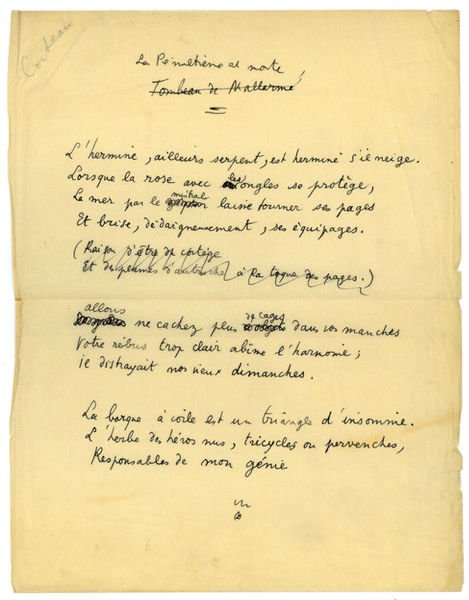 Cocteau
La Pénultième est morte
Tombeau de Mallarmé
L'hermine, ailleurs serpent, est hermine s'il neige.
Lorsque la rose avec les ongles se protège,
La mer par le mistral laisse tourner ses pages
Et brise, dédaigneusement, ses équipages.
(Raison d'être de cortège
Et de plumes d'autruche à la toque des pages.)
allons
ne cachez plus de cages dans vos manches
Votre rébus trop clair abîme l'harmonie ;
je distrayait nos vieux dimanches.
La barque à voile est un triangle d'insomnie.
L'herbe des héros nus, tricycles ou pervenches,
Responsables de mon génie